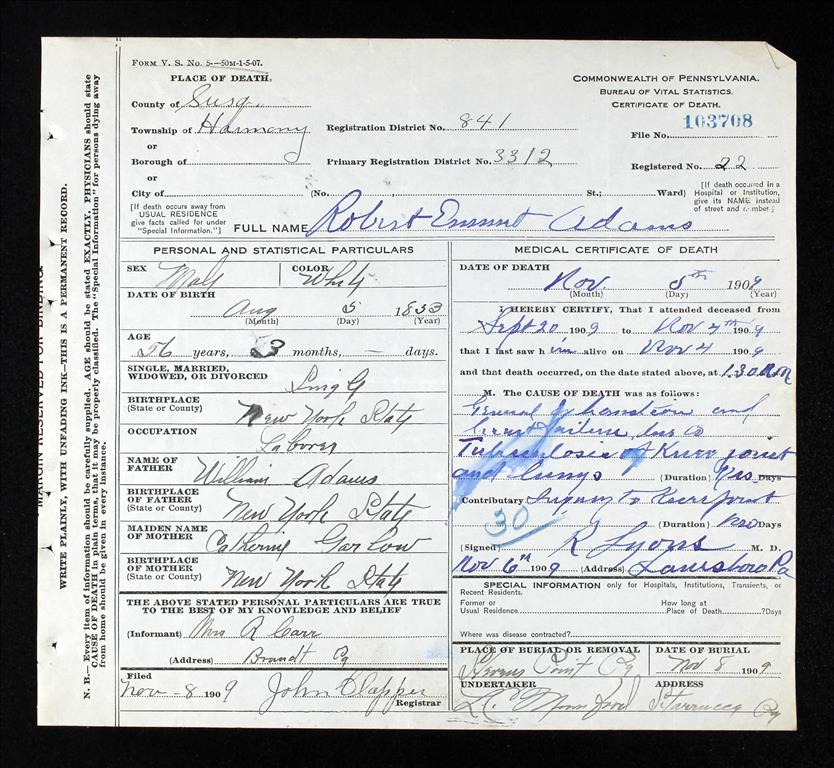 FORM V. S. No. 5—50M-1-5-07.
PLACE OF DEATH.
County of Susq.
Township of Harmony
or
Borough of
or
City of
Registration District No. 841
Primary Registration District No. 3312
(No. St.; Ward)
COMMONWEALTH OF PENNSYLVANIA.
BUREAU OF VITAL STATISTICS.
CERTIFICATE OF DEATH.
File No. 103708
Registered No. 22
[If death occurred in a Hospital or Institution, give its NAME instead of street and number.]
[If death occurs away from USUAL RESIDENCE give facts called for under "Special Information."]
FULL NAME Robert Emmut Adams
PERSONAL AND STATISTICAL PARTICULARS
SEX Male
COLOR White
DATE OF BIRTH
Aug 5 1853
(Month) (Day) (Year)
AGE
56 years, 3 months, — days.
SINGLE, MARRIED,
WIDOWED, OR DIVORCED Single
BIRTHPLACE
(State or County) New York State
OCCUPATION
Laborer
NAME OF
FATHER William Adams
BIRTHPLACE
OF FATHER
(State or County) New York State
MAIDEN NAME
OF MOTHER Catherine Garlow
BIRTHPLACE
OF MOTHER
(State or County) New York State
THE ABOVE STATED PERSONAL PARTICULARS ARE TRUE
TO THE BEST OF MY KNOWLEDGE AND BELIEF
(Informant) Mrs R Carr
(Address) Brandt Pa
Filed
Nov-8 1909 John Clapper
Registrar
MEDICAL CERTIFICATE OF DEATH
DATE OF DEATH
Nov. 5th 1909
(Month) (Day) (Year)
I HEREBY CERTIFY, That I attended deceased from
Sept 20 1909 to Nov 4th 1909
that I last saw him alive on Nov 4 1909
and that death occurred, on the date stated above, at 1.30 A.M
M. The CAUSE OF DEATH was as follows:
General Exhaustion and
heart failure due to
Tuberculosis of Knee joint
and lungs (Duration) Yrs Days
Contributory Injury to Knee joint
30
(Duration) Days
(Signed) R Lyons M. D.
Nov 6th 1909 (Address) Lanesboro Pa
SPECIAL INFORMATION only for Hospitals, Institutions, Transients, or Recent Residents.
Former or
Usual Residence
How long at
Place of Death ?Days
Where was disease contracted?
PLACE OF BURIAL OR REMOVAL
Stevens Point Pa
DATE OF BURIAL
Nov 8 1909
UNDERTAKER
ADDRESS
Starrucca Pa
MARGIN RESERVED FOR BINDING
WRITE PLAINLY, WITH UNFADING INK—THIS IS A PERMANENT RECORD.
N. B.—Every item of information should be carefully supplied. AGE should be stated EXACTLY. PHYSICIANS should state
CAUSE OF DEATH in plain terms, that it may be properly classified. The "Special Information" for persons dying away
from home should be given in every instance.